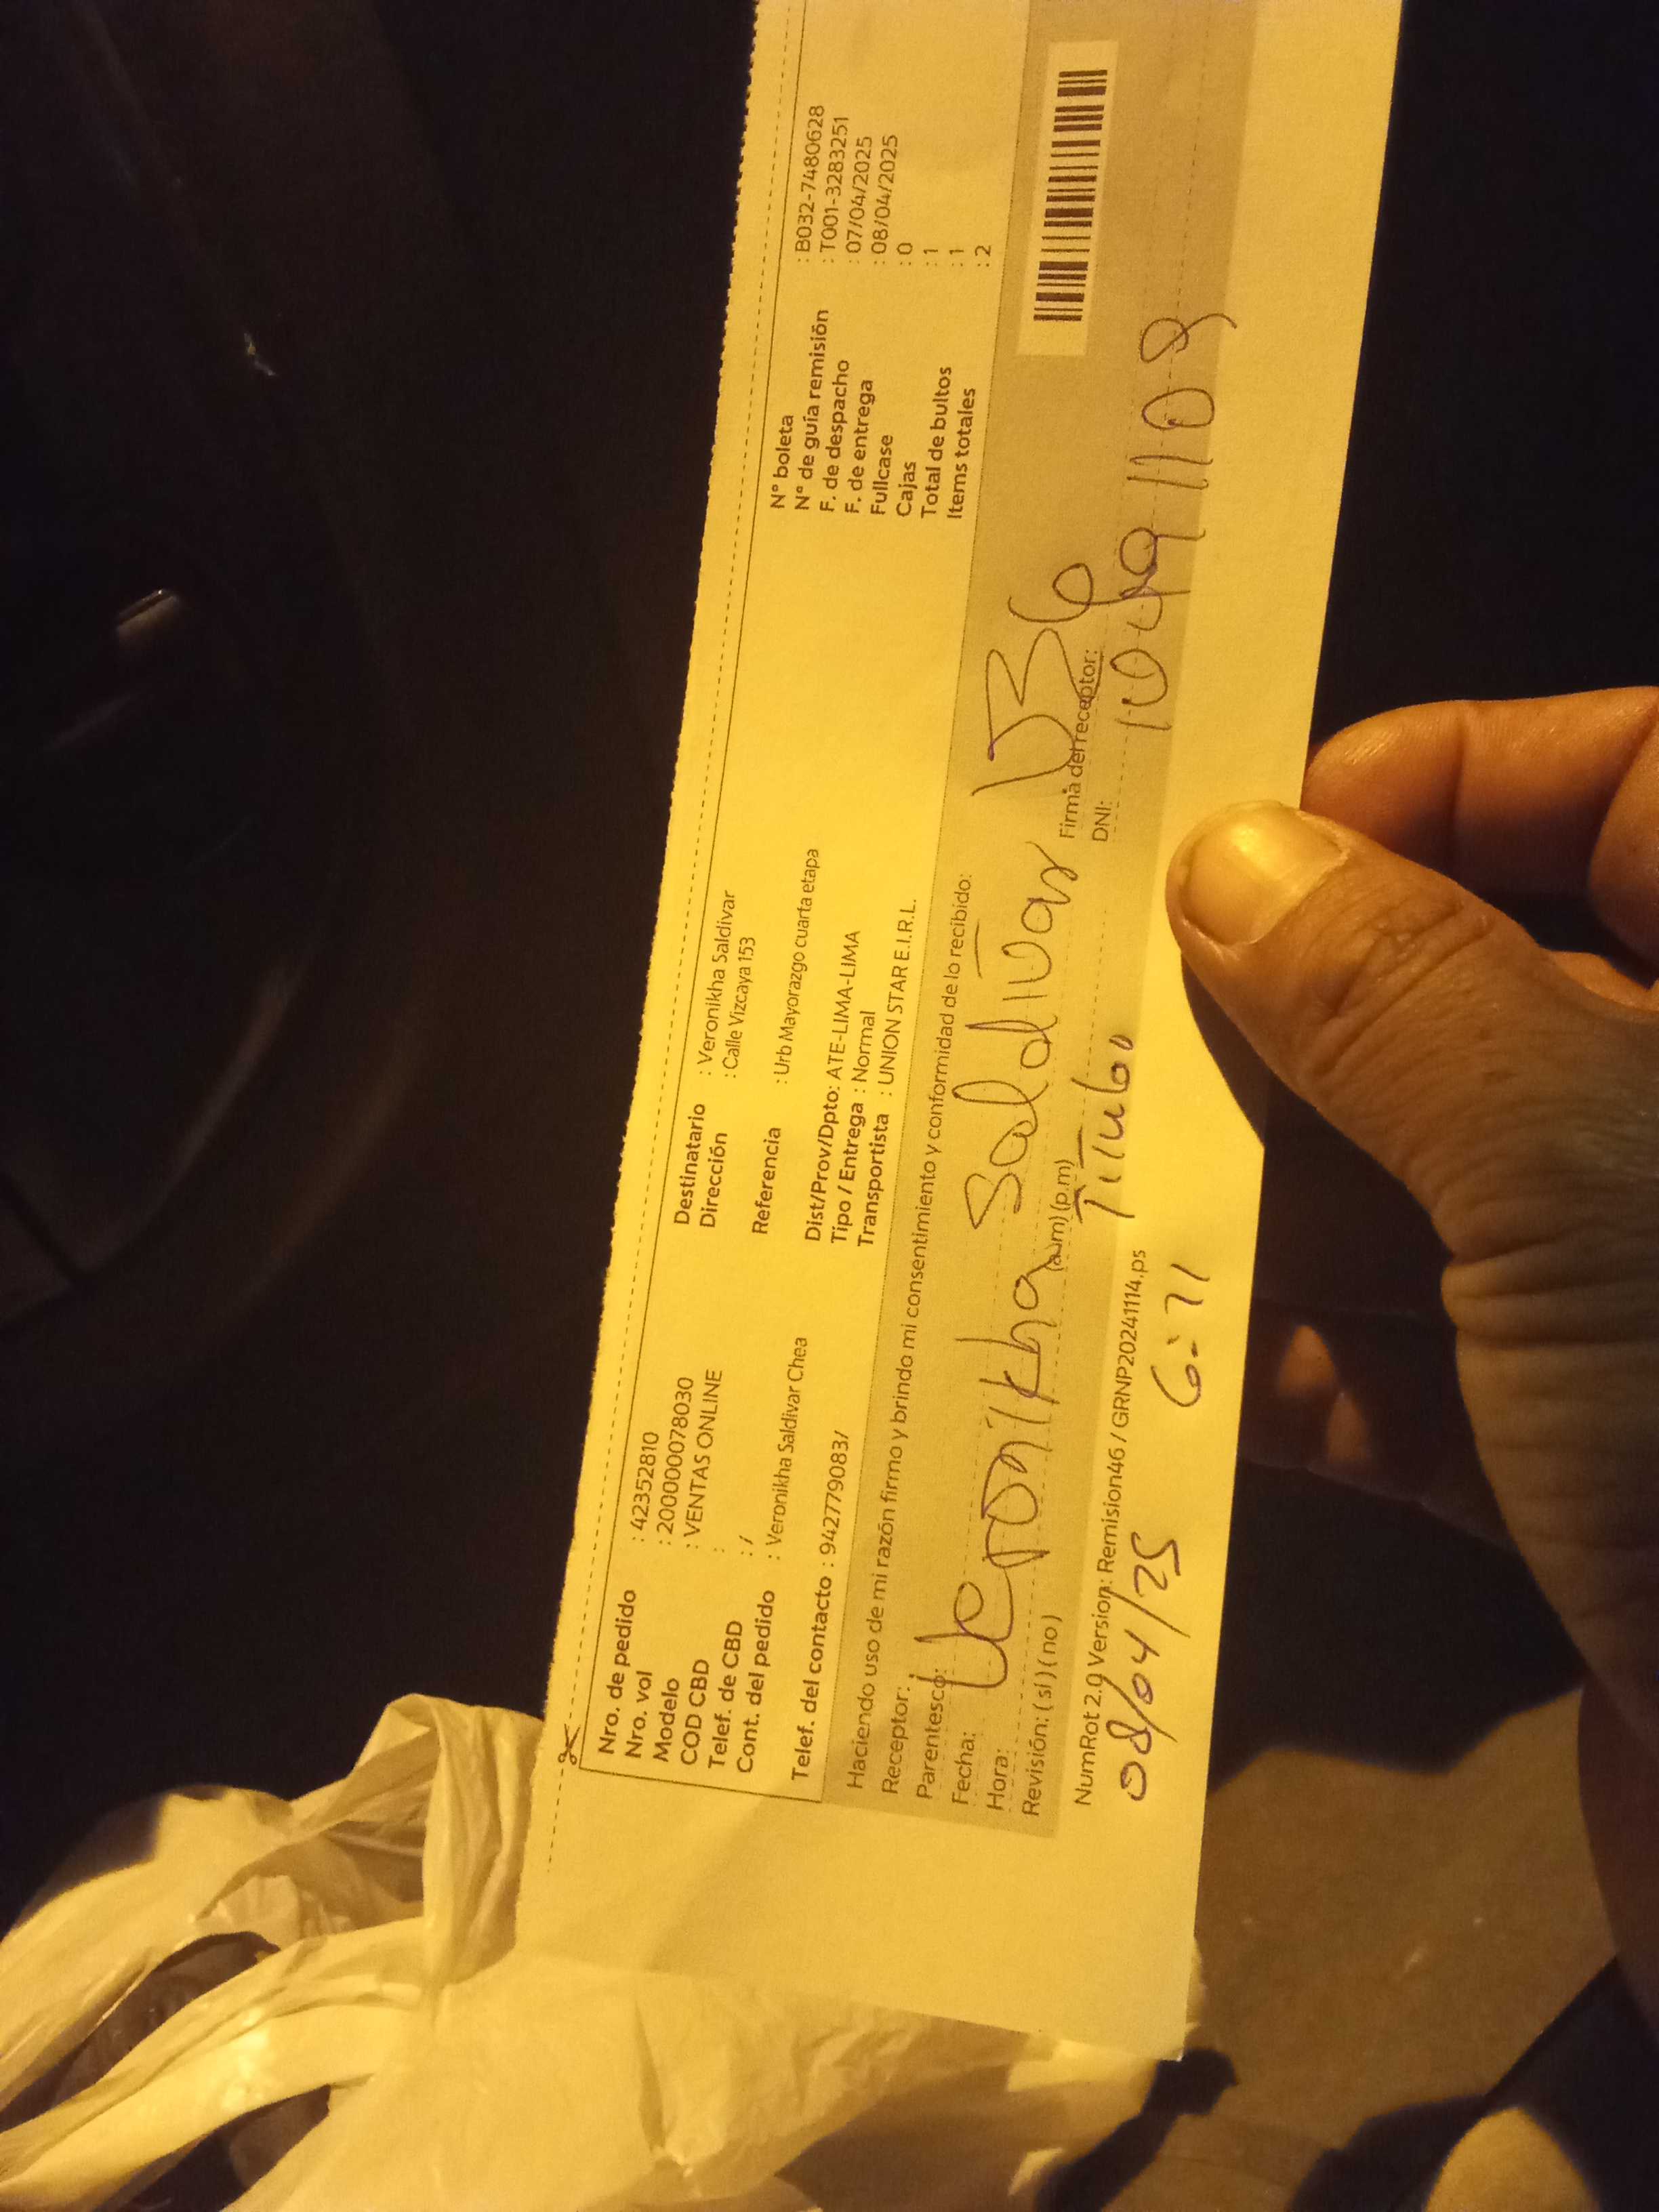 Nro. de pedido : 42352810
Nro. vol : 200000078030
Modelo : VENTAS ONLINE
COD CBD :
Telef. de CBD : /
Cont. del pedido : Veronikha Saldivar Chea
Telef. del contacto : 942779083/
Destinatario : Veronikha Saldivar
Dirección : Calle Vizcaya 153
Referencia : Urb Mayorazgo cuarta etapa
Dist/Prov/Dpto: ATE-LIMA-LIMA
Tipo / Entrega : Normal
Transportista : UNION STAR E.I.R.L.
N° boleta : B032-7480628
N° de guía remisión : T001-3283251
F. de despacho : 07/04/2025
F. de entrega : 08/04/2025
Fullcase : 0
Cajas : 1
Total de bultos : 1
Items totales : 2
Haciendo uso de mi razón firmo y brindo mi consentimiento y conformidad de lo recibido:
Receptor:
Parentesco:
Veronikha Saldivar
Fecha:
Hora: (a.m) (p.m)
Revisión: (si) (no)
Firma del receptor:
DNI:
Titular
NumRot 2.0 Version: Remision46 / GRNP20241114.ps
08/04/25